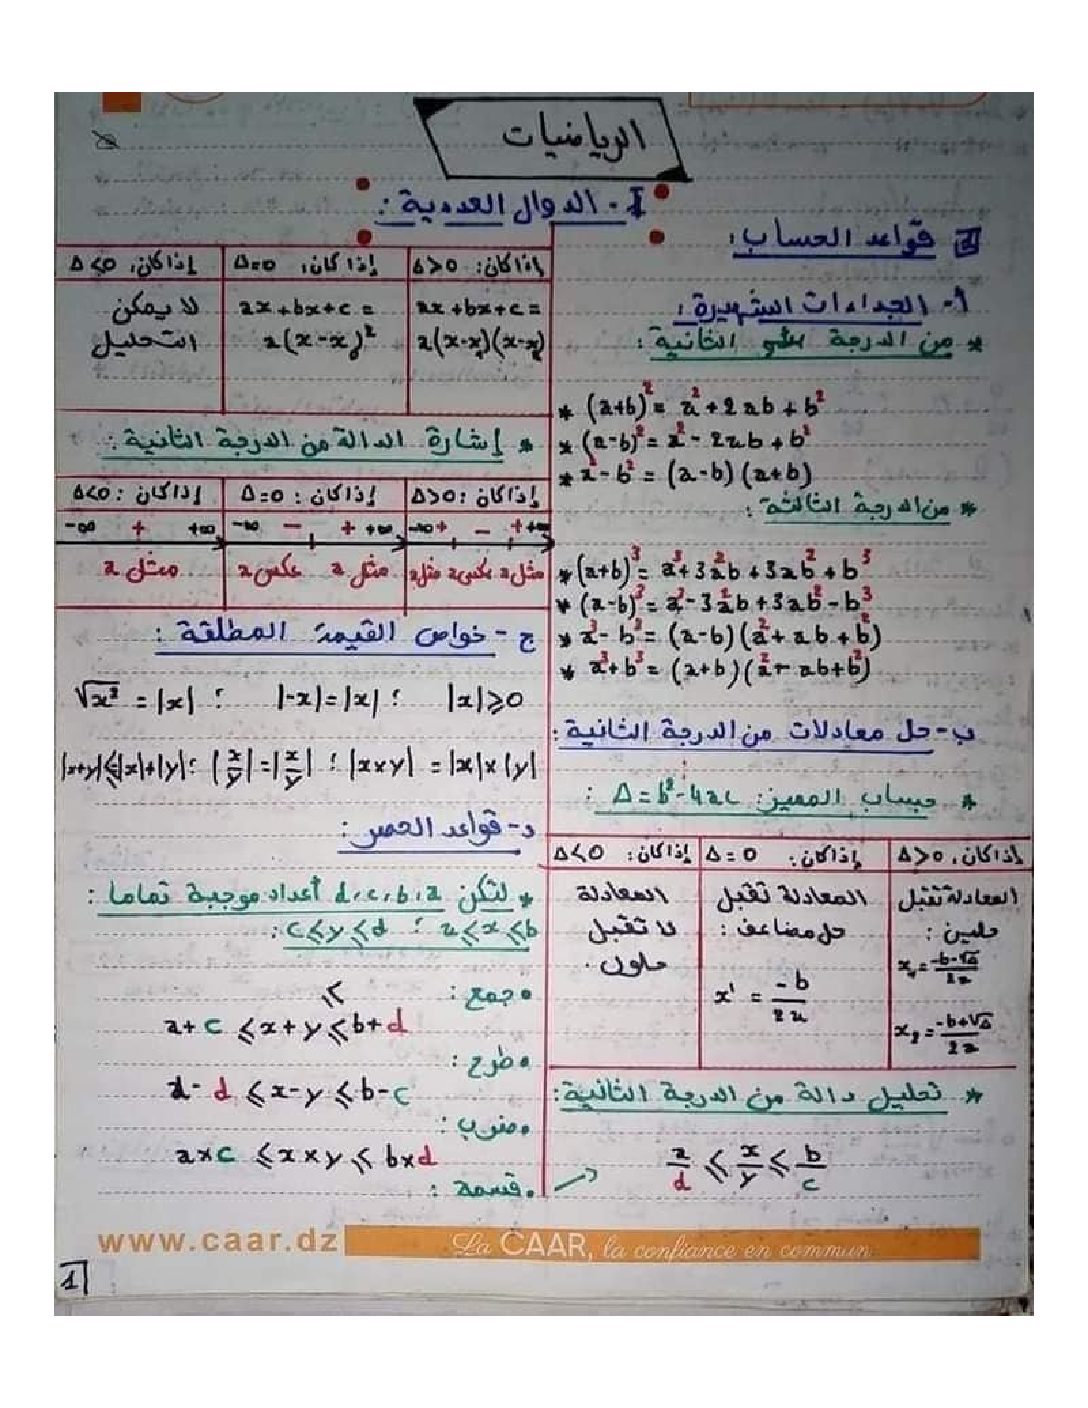 الرياضيات
I - الدوال العددية :
قواعد الحساب :
أ - الجداءات الشهيرة :
* من الدرجة الثانية :
* (a+b)² = a² + 2ab + b²
* (a-b)² = a² - 2ab + b²
* a² - b² = (a-b)(a+b)
* من الدرجة الثالثة :
* (a+b)³ = a³ + 3a²b + 3ab² + b³
* (a-b)³ = a³ - 3a²b + 3ab² - b³
* a³ - b³ = (a-b)(a² + ab + b²)
* a³ + b³ = (a+b)(a² - ab + b²)
ب - حل معادلات من الدرجة الثانية :
* حساب المميز : Δ = b² - 4ac :
إذا كان : Δ>0 إذا كان : Δ=0 إذا كان : Δ<0
المعادلة تقبل المعادلة تقبل المعادلة
حلين : حل مضاعف : لا تقبل
حلول .
x₁ = (-b-√Δ)/2a x' = -b/2a
x₂ = (-b+√Δ)/2a
* تحليل دالة من الدرجة الثانية :
إذا كان : Δ>0 إذا كان : Δ=0 إذا كان : Δ<0
ax + bx + c = ax + bx + c = لا يمكن
a(x-x₁)(x-x₂) a(x-x₀)² التحليل
* إشارة الدالة من الدرجة الثانية :
إذا كان : Δ>0 إذا كان : Δ=0 إذا كان : Δ<0
-∞ + +∞ -∞ - + +∞ -∞ + - + +∞
مثل a عكس a مثل a مثل a عكس a مثل a
ج - خواص القيمة المطلقة :
|x| ≥ 0 ; |-x| = |x| ; √x² = |x|
|x×y| = |x|×|y| ; |x/y| = |x/y| ; |x+y| ≤ |x|+|y|
د - قواعد الحصر :
* لتكن d, c, b, a أعداد موجبة تماما :
a ≤ x ≤ b ; c ≤ y ≤ d :
• جمع :
a+c ≤ x+y ≤ b+d
• طرح :
d-d ≤ x-y ≤ b-c
• ضرب :
a×c ≤ x×y ≤ b×d
• قسمة :
a/d ≤ x/y ≤ b/c
www.caar.dz
La CAAR, la confiance en commun
1